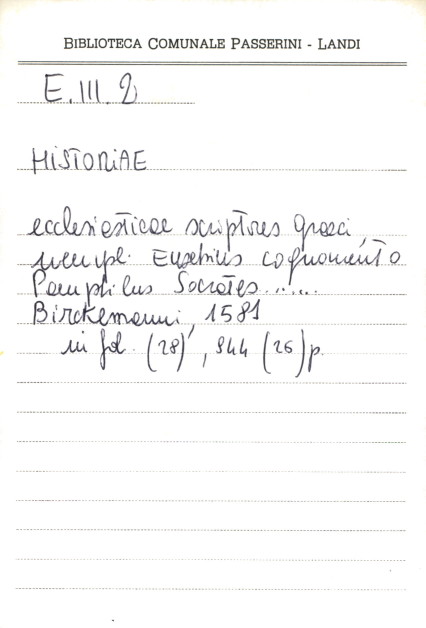 BIBLIOTECA COMUNALE PASSERINI - LANDI
E. III. 2
HISTORIAE
ecclesiasticae scriptores Graeci,
nempe. Eusebius cognomento
Pamphilus Socrates......
Birckemanni, 1581
in fol. (28), 944 (26) p.